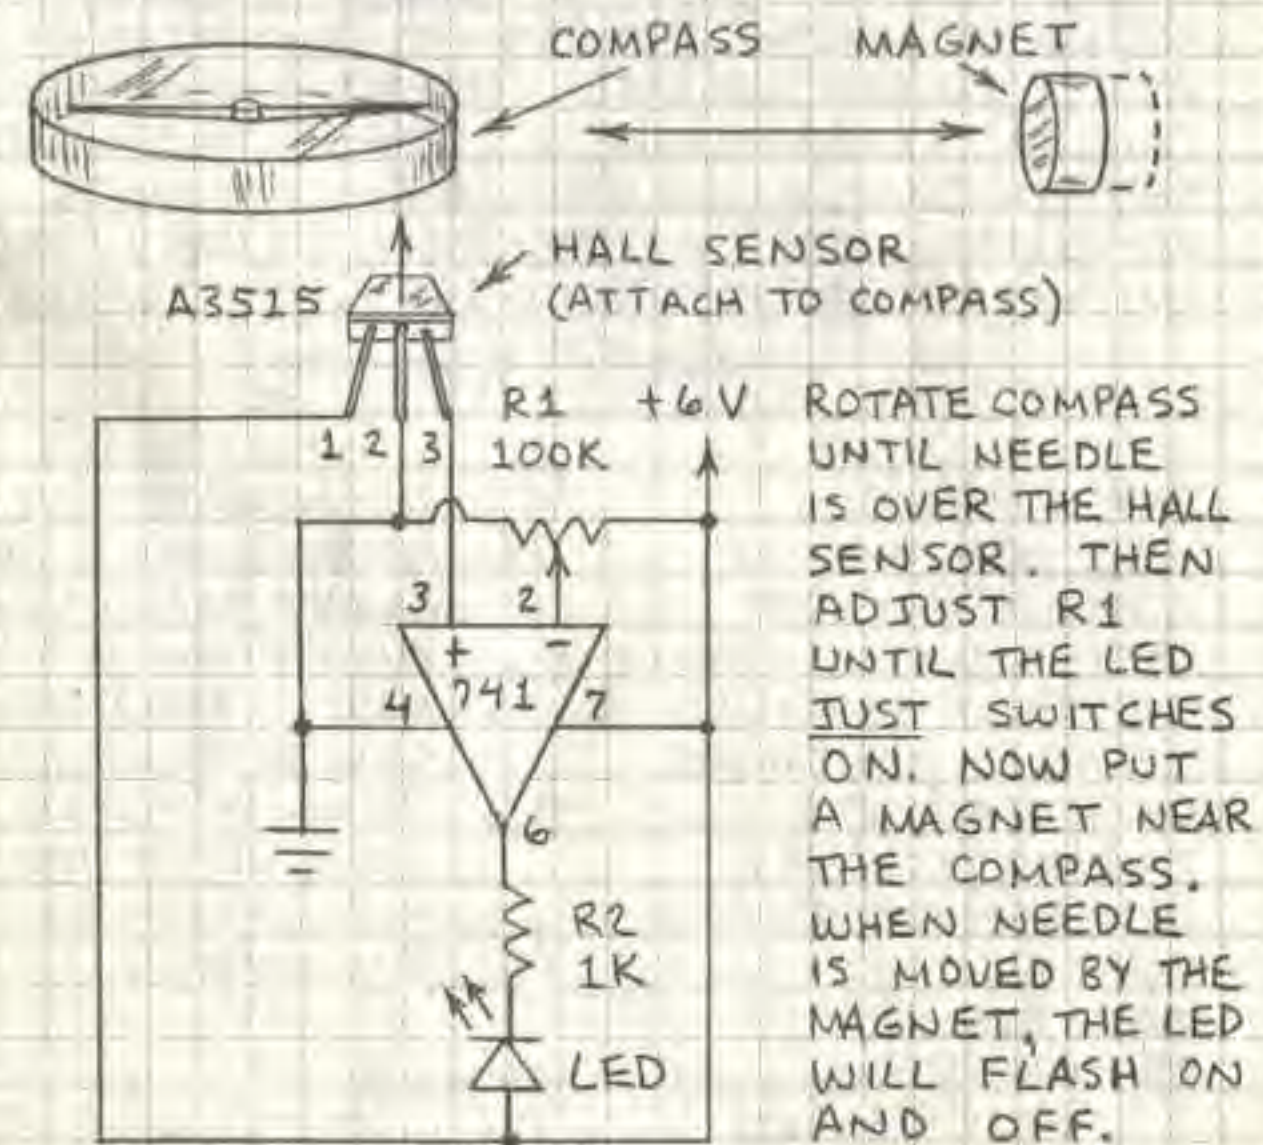 COMPASS MAGNET
HALL SENSOR
(ATTACH TO COMPASS)
A3515
R1 +6V
100K
1 2 3
3 2
+ -
741
4 7
6
R2
1K
LED
ROTATE COMPASS
UNTIL NEEDLE
IS OVER THE HALL
SENSOR. THEN
ADJUST R1
UNTIL THE LED
JUST SWITCHES
ON. NOW PUT
A MAGNET NEAR
THE COMPASS.
WHEN NEEDLE
IS MOVED BY THE
MAGNET, THE LED
WILL FLASH ON
AND OFF.